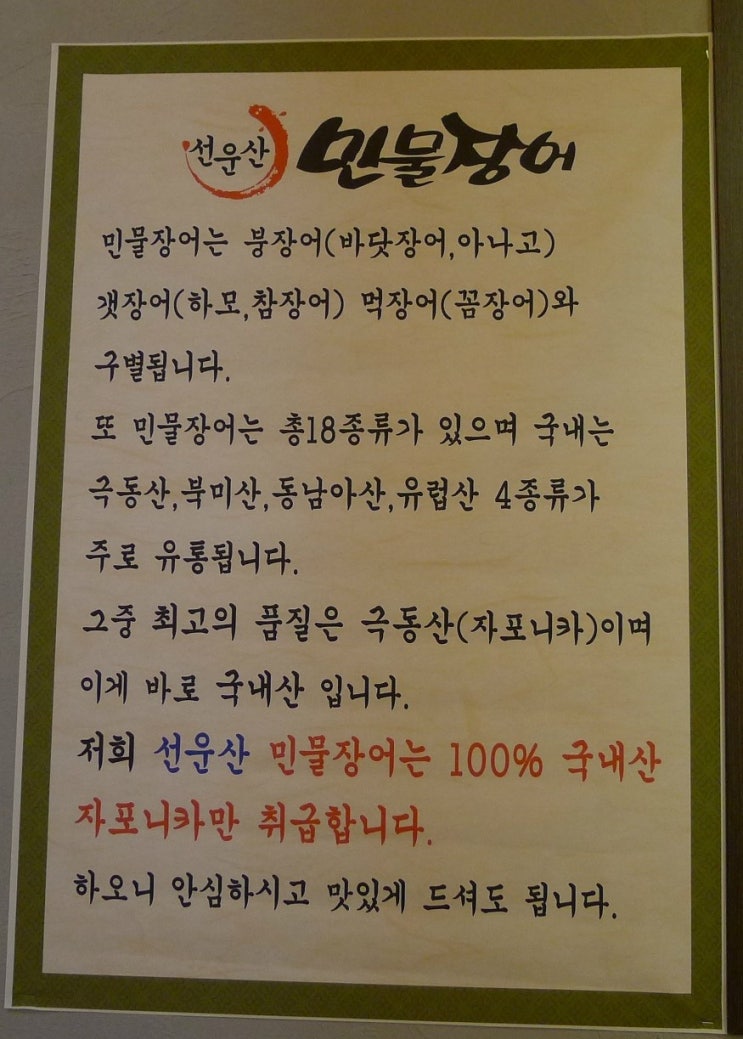 선운산 민물장어
민물장어는 붕장어(바닷장어,아나고)
갯장어(하모,참장어) 먹장어(꼼장어)와
구별됩니다.
또 민물장어는 총18종류가 있으며 국내는
극동산,북미산,동남아산,유럽산 4종류가
주로 유통됩니다.
그중 최고의 품질은 극동산(자포니카)이며
이게 바로 국내산 입니다.
저희 선운산 민물장어는 100% 국내산
자포니카만 취급합니다.
하오니 안심하시고 맛있게 드셔도 됩니다.